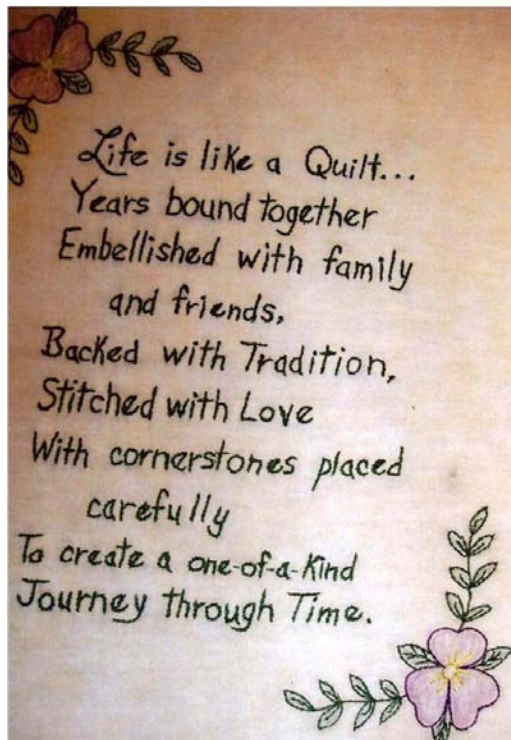 Life is like a Quilt...
Years bound together
Embellished with family
and friends,
Backed with Tradition,
Stitched with Love
With cornerstones placed
carefully
To create a one-of-a-Kind
Journey through Time.